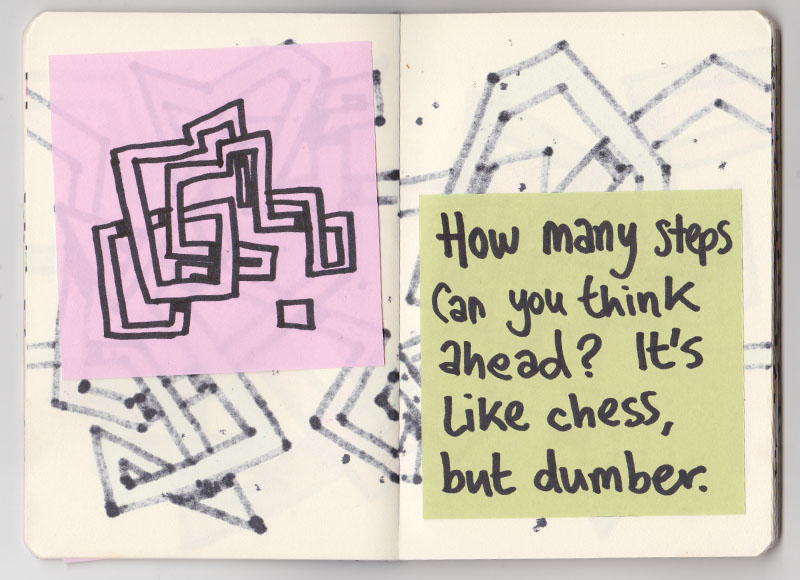 How many steps
can you think
ahead? It's
like chess,
but dumber.